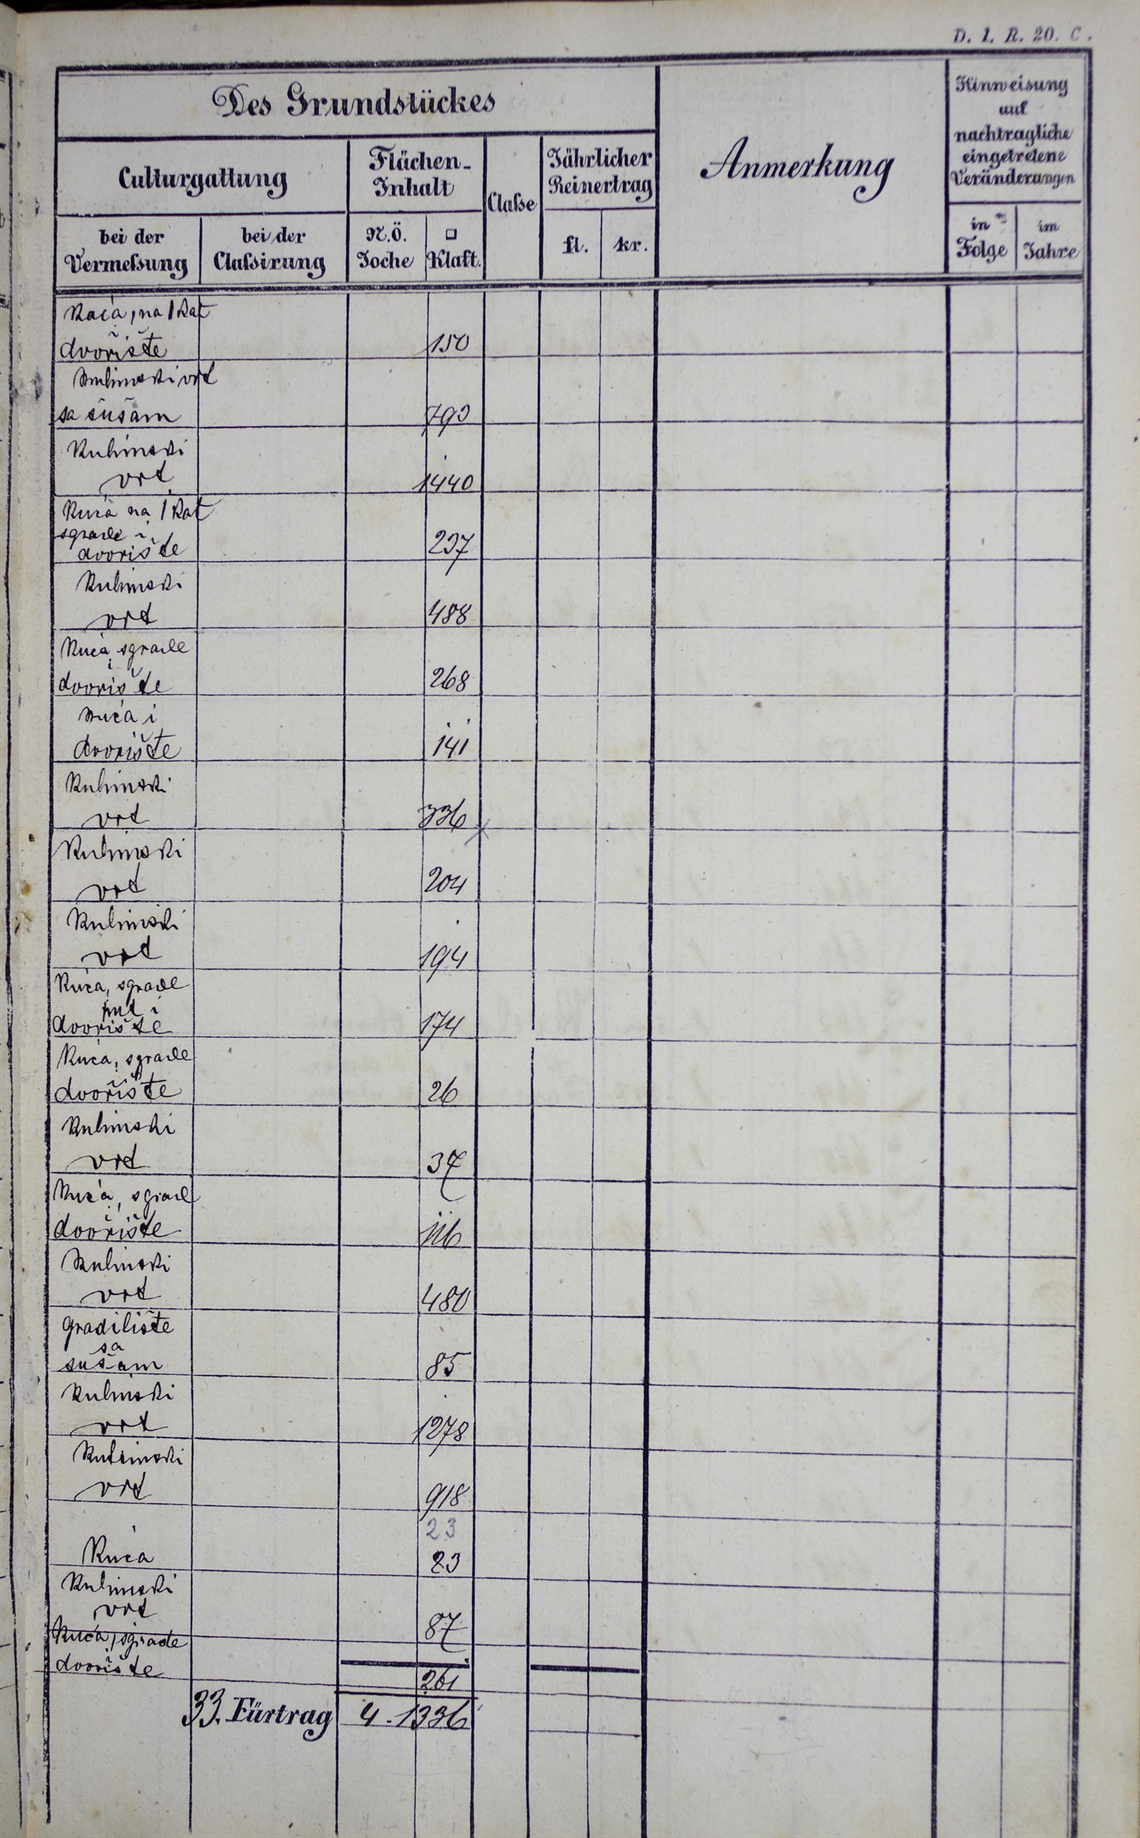 D. 1. R. 20. C.
Des Grundstückes
Culturgattung
Flächen-
Inhalt
Claße
Jährlicher
Reinertrag
Anmerkung
Hinweisung
auf
nachtragliche
eingetretene
Veränderungen
bei der
Vermeßung
bei der
Claßirung
N.Ö.
Joche
□
Klaft.
fl.
kr.
in
Folge
im
Jahre
Kuća, na 1 kat
dvorište 150
Kuhinski vrt
sa šušam 793
Kuhinski
vrt 1440
Kuća na 1 kat
sgrade i
dvorište 237
Kuhinski
vrt 488
Kuća sgrade
i
dvorište 268
Kuća i
dvorište 141
Kuhinski
vrt 336
Kuhinski
vrt 204
Kuhinski
vrt 194
Kuća, sgrade
put i
dvorište 174
Kuća, sgrade
i
dvorište 26
Kuhinski
vrt 37
Kuća, sgrade
i
dvorište 116
Kuhinski
vrt 480
gradilište
sa
sušam 85
Kuhinski
vrt 1278
Kuhinski
vrt 918
23
Kuća 23
Kuhinski
vrt 87
Kuća, sgrade
dvorište 261
33. Fürtrag 4. 1336